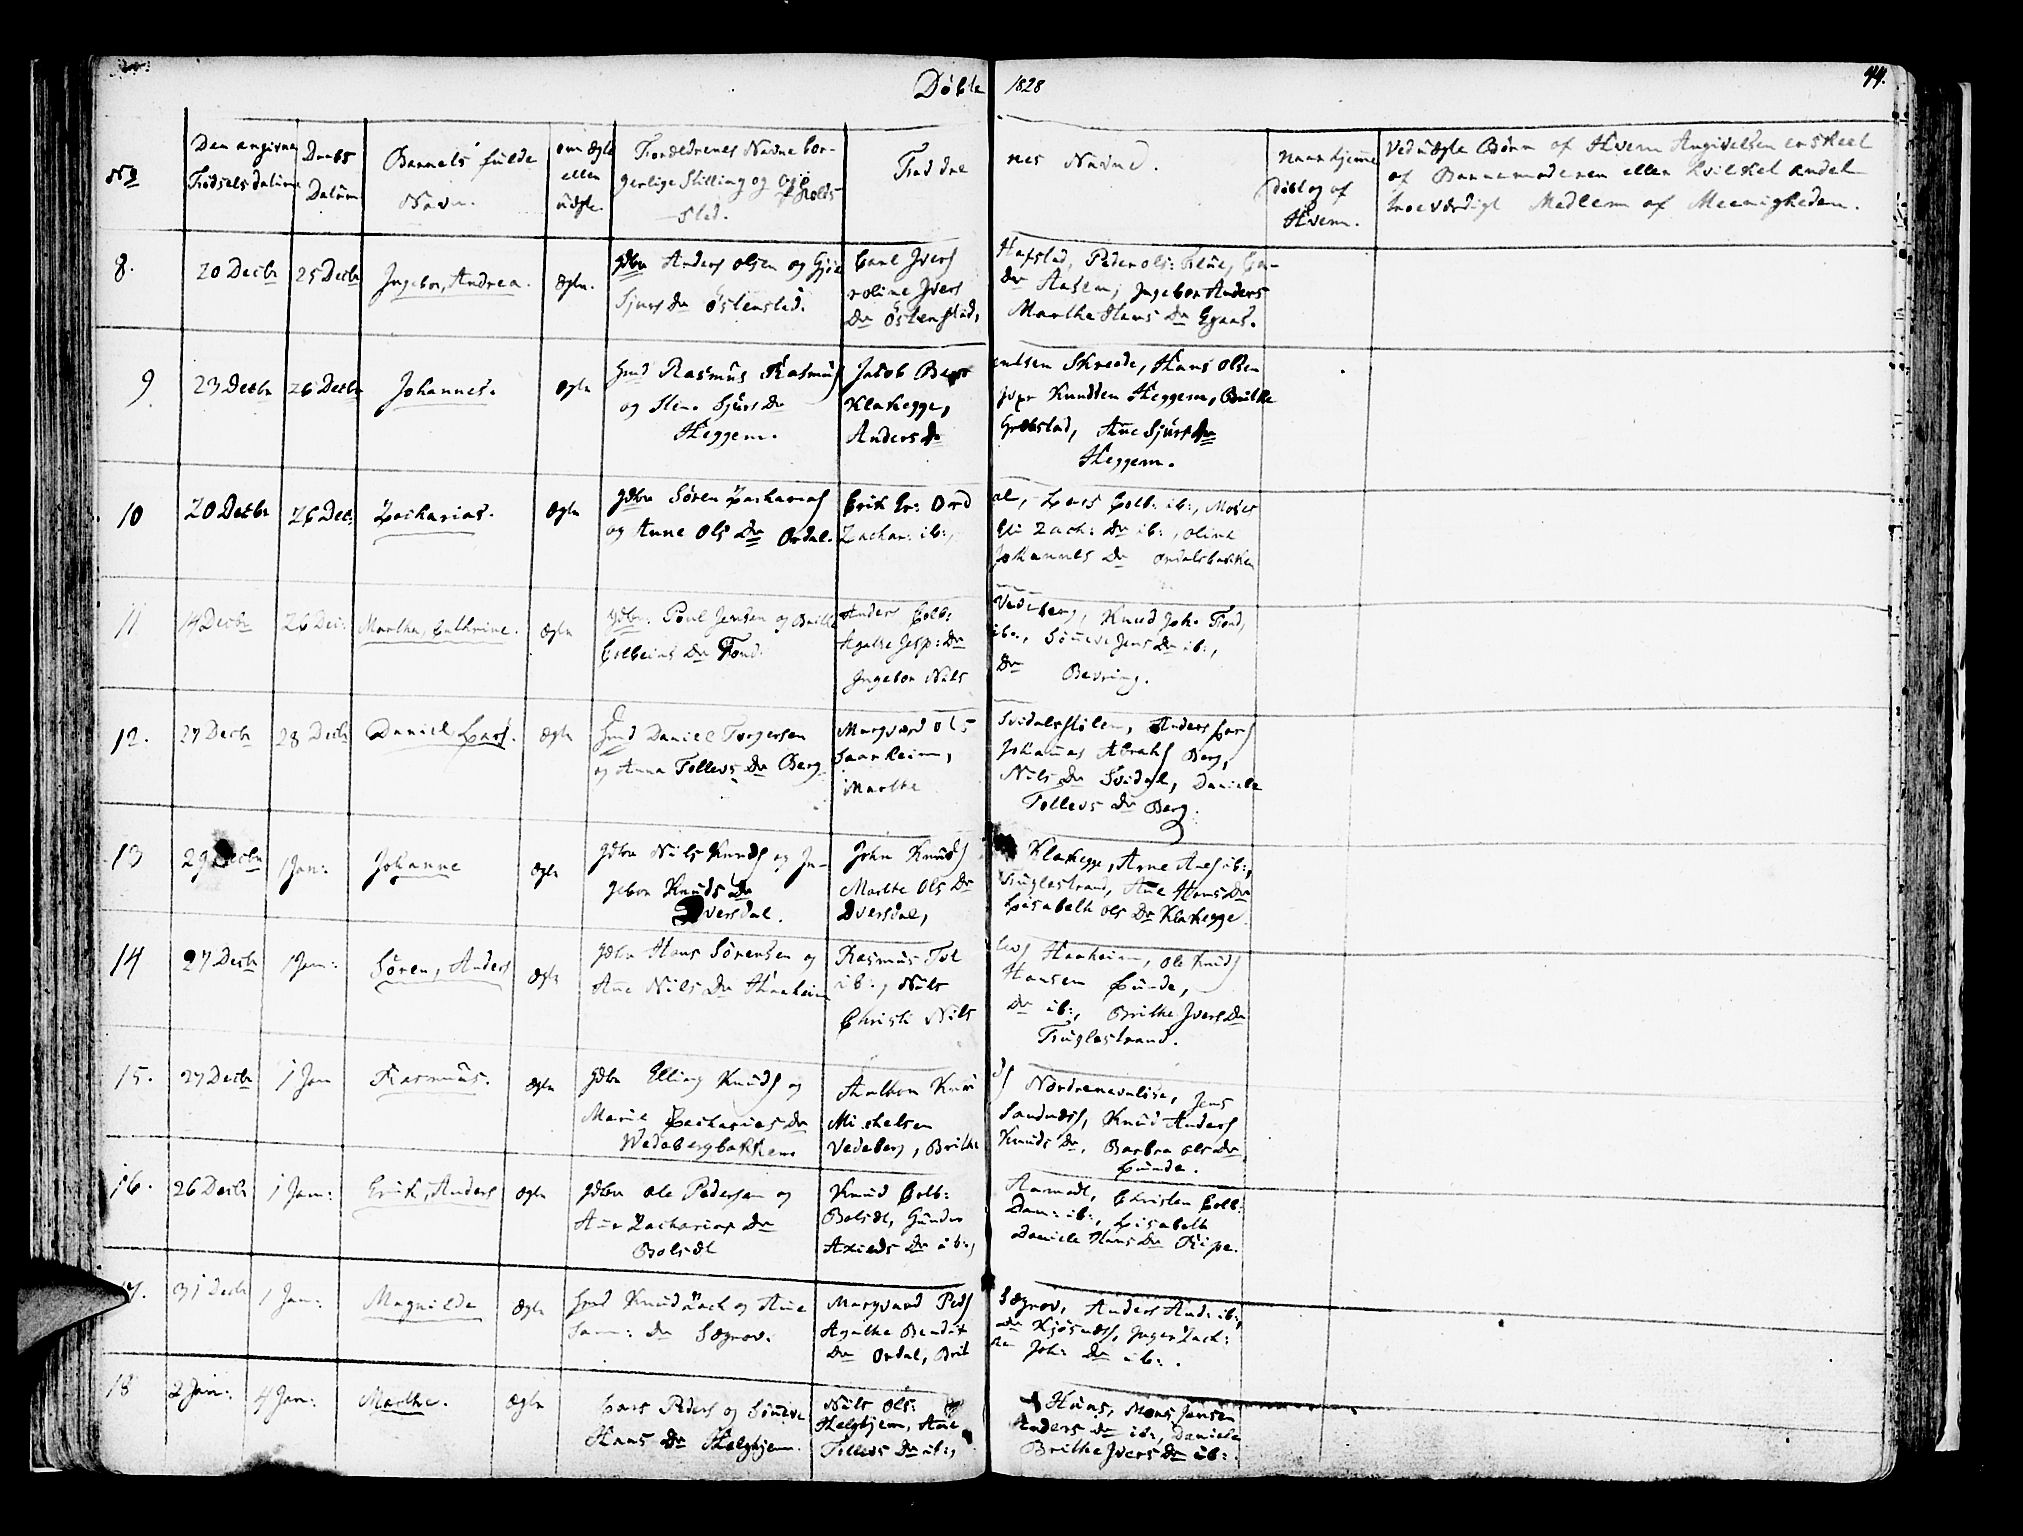 Døbte 1828
44.
No
Den angivne
Fødsels datum
Daabs
Datum
Barnets fulde
Navn.
om ægte
eller
uægte.
Forældrenes Navne bor-
gerlige Stilling og Opholds-
sted.
Faddernes Navne.
naar hjemme
døbt og af
Hvem.
Ved uægte Børn af Hvem Angivelsen er skeet
af Barnemoderen eller hvilket andet
troeværdigt Medlem af Meenigheden.
8.
20 Decbr
25 Decbr
Ingebor, Andrea.
Ægte.
Gdbr Anders Olsen og
Sjurs Dr Østenstad.
Carl Ivers Hafstad, Peder Ols:
roline Ivers Dr Aasen, Ingebor Anders
Dr Østenstad, Marthe Hans Dr
9
23 Decbr
26 Decbr
Johannes.
Ægte
Gmd Rasmus Rasmus
og Sjurs Dr
Heggem.
Jacob Skrede, Hans Olsen
Klakegge, Knudsen Heggem, Brithe
Anders Dr Grøbstad, Ane Sjurs Dr
Heggem.
10
20 Decbr
26 Dec:
Zacharias.
Ægte
Gdbr Søren Zacharias
og Anne Ols Dr Ordal.
Erik Er: Ordal, Lars Colb: ib:, Moses
Zachar: ib:, Zach: Dr ib:, Oline
Johannes Dr Ordalsbakken
11
14 Decbr
26 Dec:
Marthe, Cathrine.
Ægte
Gdbr: Poul Jensen og Brithe
Colbeins Dr Fond.
Anders Colb: Vedeberg, Knud Joh: Fond,
Agathe Jesp: Dr ib:, Sønneve Jens Dr ib:,
Ingebor Nils Dr Bevring.
12.
27 Decbr
28 Decbr
Daniel, Lars.
Ægte
Gmd Daniel Torgersen
og Anna Tollevs Dr Berg
Margvard Ols Svidalsstølen, Anders Lars
Saanheim, Johannes Abrahs Berg,
Marthe Nils Dr Svidal, Daniele
Tollevs Dr Berg.
13
29 Decbr
1 Jan:
Johanne
Ægte
Gdbr Nils Knuds og In-
gebor Knuds Dr
Dversdal.
John Knuds Klakegge, Arne Anes ib:,
Marthe Ols Dr Fuglestrand, Ane Hans Dr
Dversdal, Lisabeth Ols Dr Klakegge.
14
27 Decbr
1 Jan:
Søren, Anders
Ægte
Gdbr Hans Sørensen og
Ane Nils Dr Haaheim
Rasmus Tollevs Haaheim, Ole Knuds
ib:, Nils Hansen Lunde,
Christi Nils Dr ib:, Brithe Ivers Dr
Fuglestrand.
15.
27 Decbr
1 Jan
Rasmus.
Ægte
Gdbr Elling Knuds og
Marie Zacharias Dr
Vedebergbakken
Knuds Nordrenevalise, Jens
Michelsen Sandnæss, Knud Anders
Vedeberg, Brithe Knuds Dr, Barbra Ols Dr
Lunde.
16.
26 Decbr
1 Jan:
Erik, Anders
Ægte
Gdbr Ole Pedersen og
Ane Zacharias Dr
Bolsæt
Knud Colb: Aamodt, Christen Colb:
Bolsæt, Gunder Dan: ib:, Lisabeth
Axieds Dr ib:, Daniele Hans Dr Ripe.
31 Decbr
1 Jan:
Magnilde
Ægte
Gmd Knud Zach og Ane
Sam: Dr Sægrov.
Margvard Peds Sægrov, Anders And: ib:,
Agathe Bendix Dr Kjøsnæss, Inger Zach:
Dr Ordal, Brit Joh: Dr ib:.
18
2 Jan:
4 Jan:
Marthe.
Ægte
Lars Peders og Sønneve
Hans Dr Helghjem.
Nils Ols: Huus, Mons Jensen
Helghjem, Ane Anders Dr ib:, Daniele
Tollevs Dr ib:, Brithe Ivers Dr ib:.